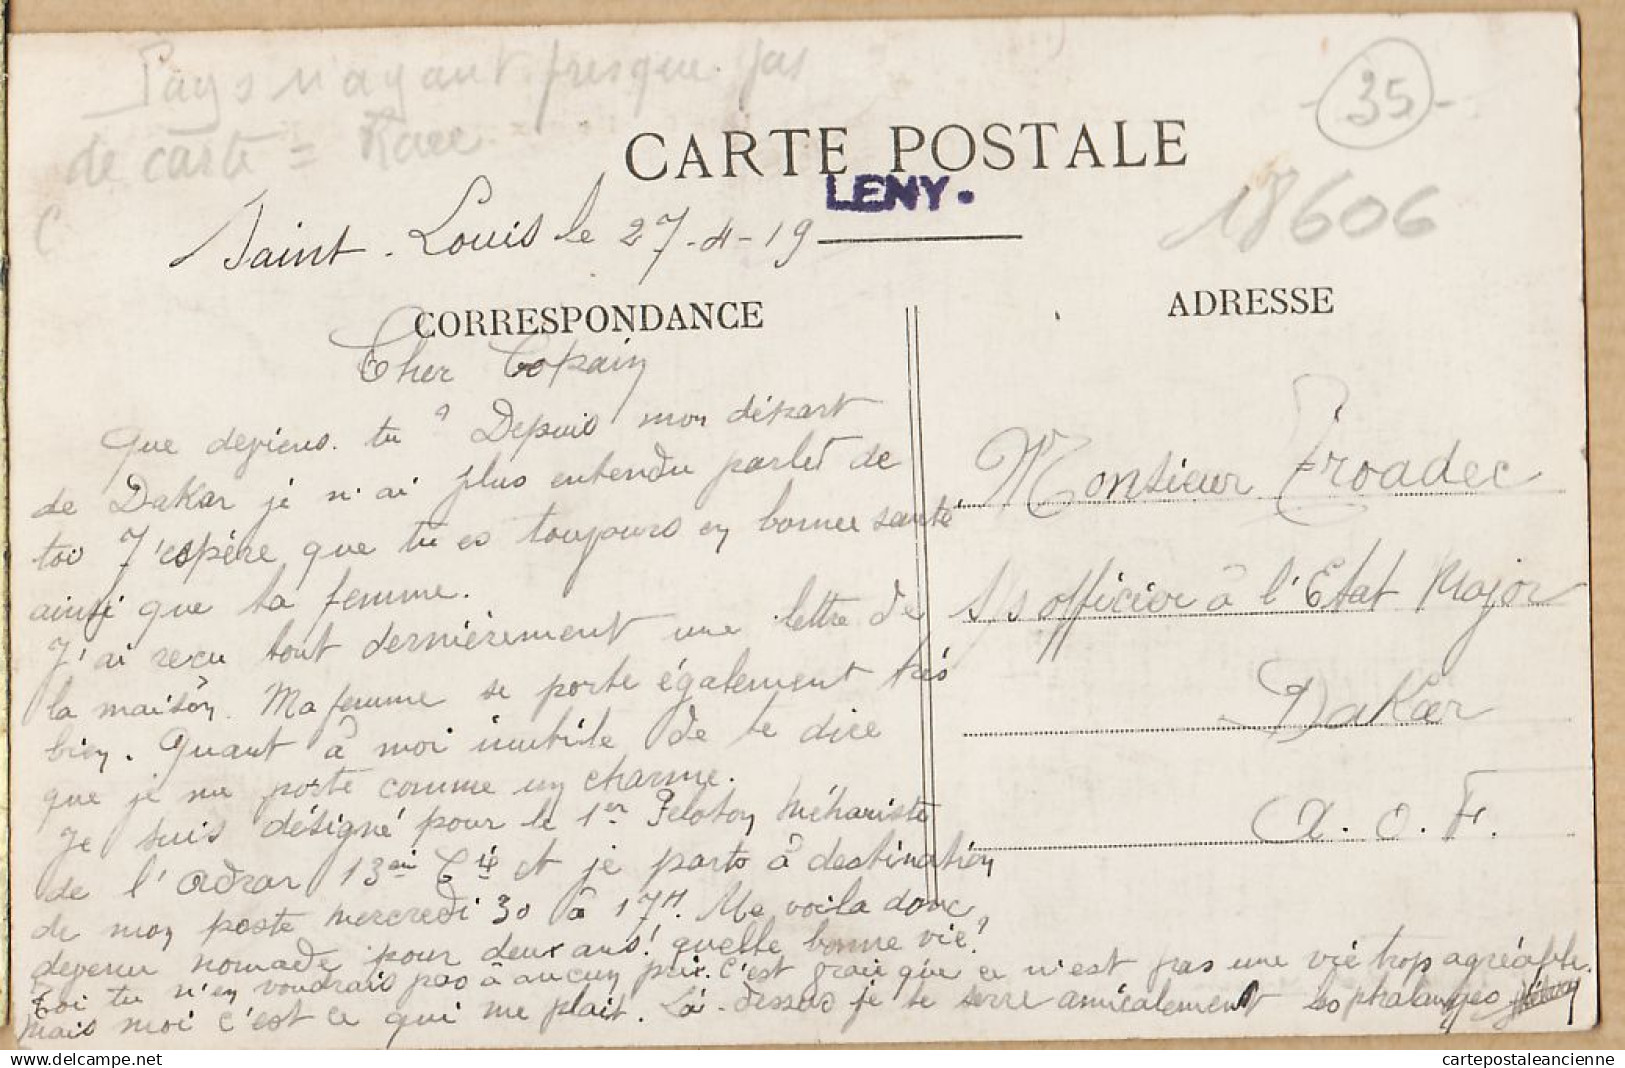 Pays n'ayant presque pas
de carte = Rare
35
CARTE POSTALE
LENY.
18606
Saint-Louis le 27-4-19
CORRESPONDANCE
ADRESSE
Cher Copain
Que deviens tu ? Depuis mon départ
de Dakar je n'ai plus entendu parler de
toi J'espère que tu es toujours en bonne santé
ainsi que ta femme.
J'ai reçu tout dernièrement une lettre de
la maison. Ma femme se porte également très
bien. Quant à moi inutile de te dire
que je me porte comme un charme.
Je suis désigné pour le 1er Peloton Méhariste
de l'Adrar 13em Cie et je parts à destination
de mon poste mercredi 30 à 17H. Me voila donc
devenu nomade pour deux ans! quelle bonne vie!
Toi tu n'en voudrais pas à aucun prix. C'est vrai que ce n'est pas une vie trop agréable.
Mais moi c'est ce qui me plait. Là-dessus je te serre amicalement les phalanges
Monsieur Troadec
S/s officier à l'Etat Major
Dakar
A.O.F.
cartepostaleancienne